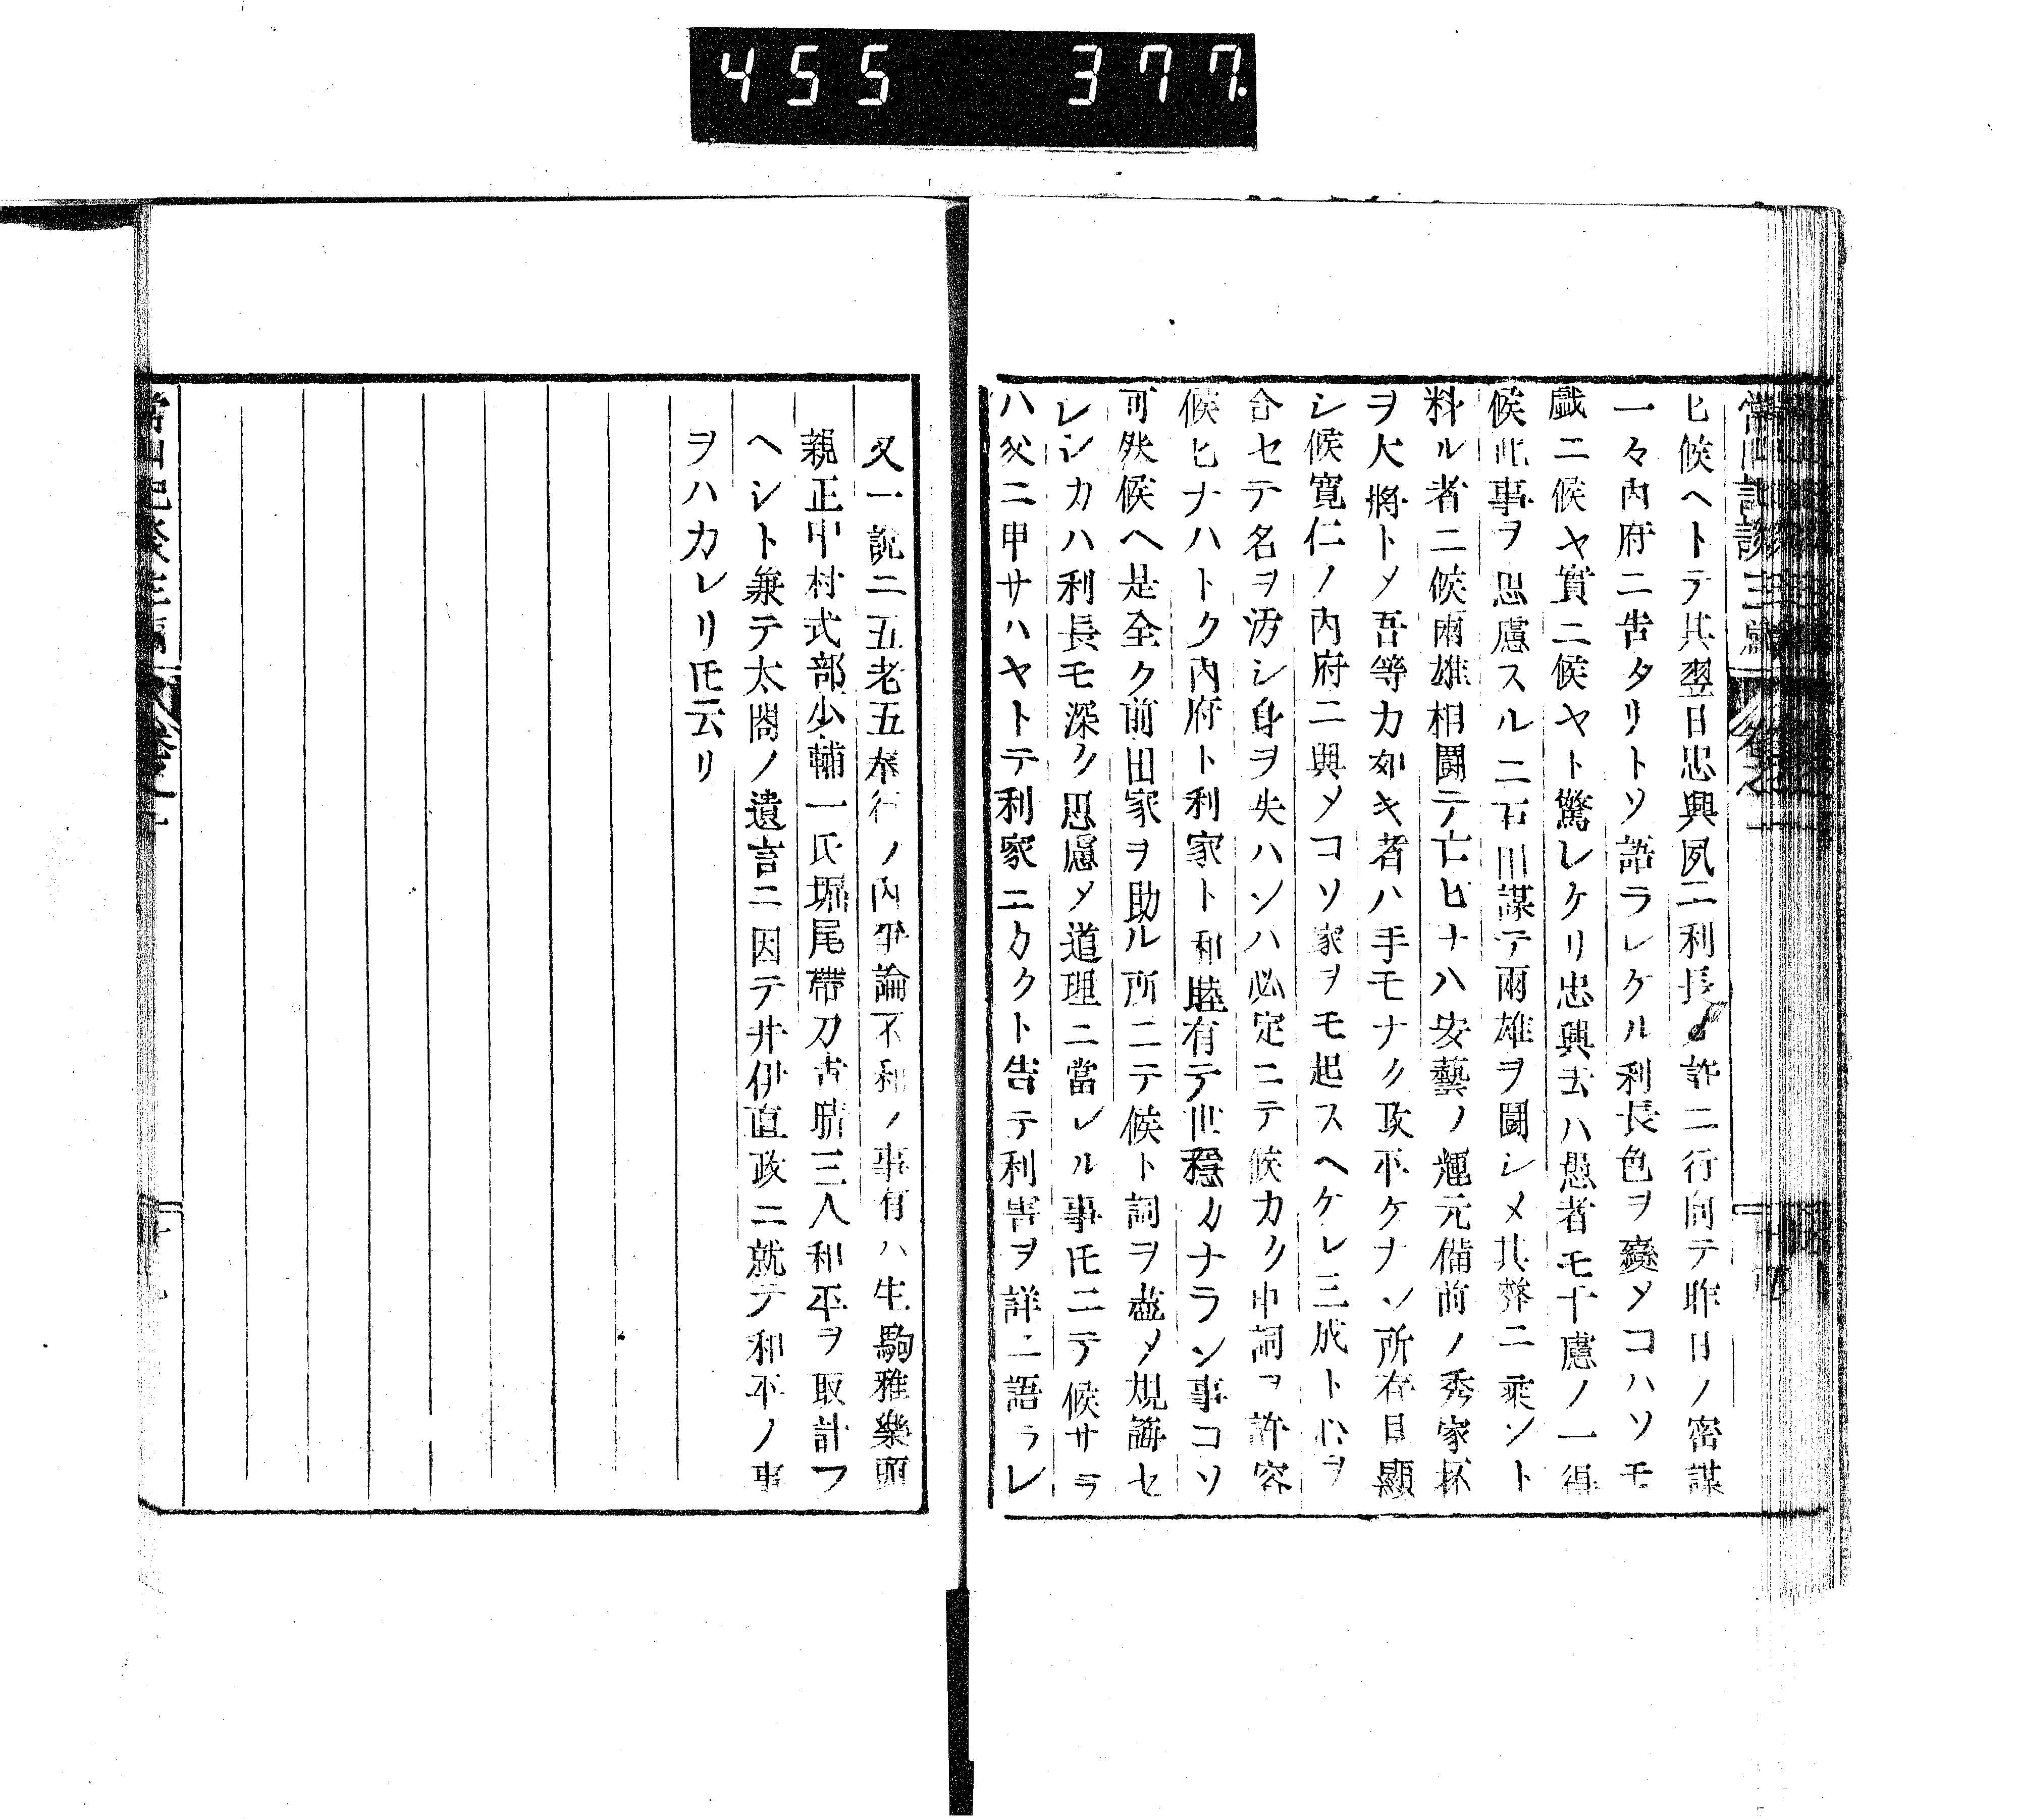 455 377.
ヒ候ヘトテ其翌日忠興夙ニ利長ノ許ニ行向テ昨日ノ密謀
一々内府ニ告タリトソ語ラレケル利長色ヲ變メコハソモ
戯ニ候ヤ實ニ候ヤト驚レケリ忠興云ハ愚者モ千慮ノ一得
候此事ヲ思慮スルニ石田謀テ兩雄ヲ鬪シメ其弊ニ乘ント
料ル者ニ候兩雄相鬪テ亡ヒナハ安藝ノ輝元備前ノ秀家杯
ヲ大將トメ吾等カ如キ者ハ手モナク攻平ケナン所存目顯
シ候寬仁ノ内府ニ與メコソ家ヲモ起スヘケレ三成ト心ヲ
合セテ名ヲ汚シ身ヲ失ハンハ必定ニテ候カク申詞ヲ許容
候ヒナハトク内府ト利家ト和睦有テ世穩カナラン事コソ
可然候ヘ是全ク前田家ヲ助ル所ニテ候ト詞ヲ盡メ規誨セ
レシカハ利長モ深ク思慮メ道理ニ當レル事𪜈ニテ候サラ
ハ父ニ申サハヤトテ利家ニカクト告テ利害ヲ詳ニ語ラレ
又一說ニ五老五奉行ノ内爭論不和ノ事有ハ生駒雅樂頭
親正中村式部少輔一氏堀尾帶刀吉晴三人和平ヲ取計フ
ヘシト兼テ太閤ノ遺言ニ因テ井伊直政ニ就テ和平ノ事
ヲハカレリ𪜈云リ